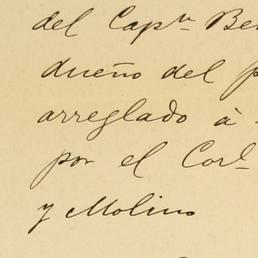 del Capⁿ Be
dueño del p
arreglado à
por el Corl
y Molino